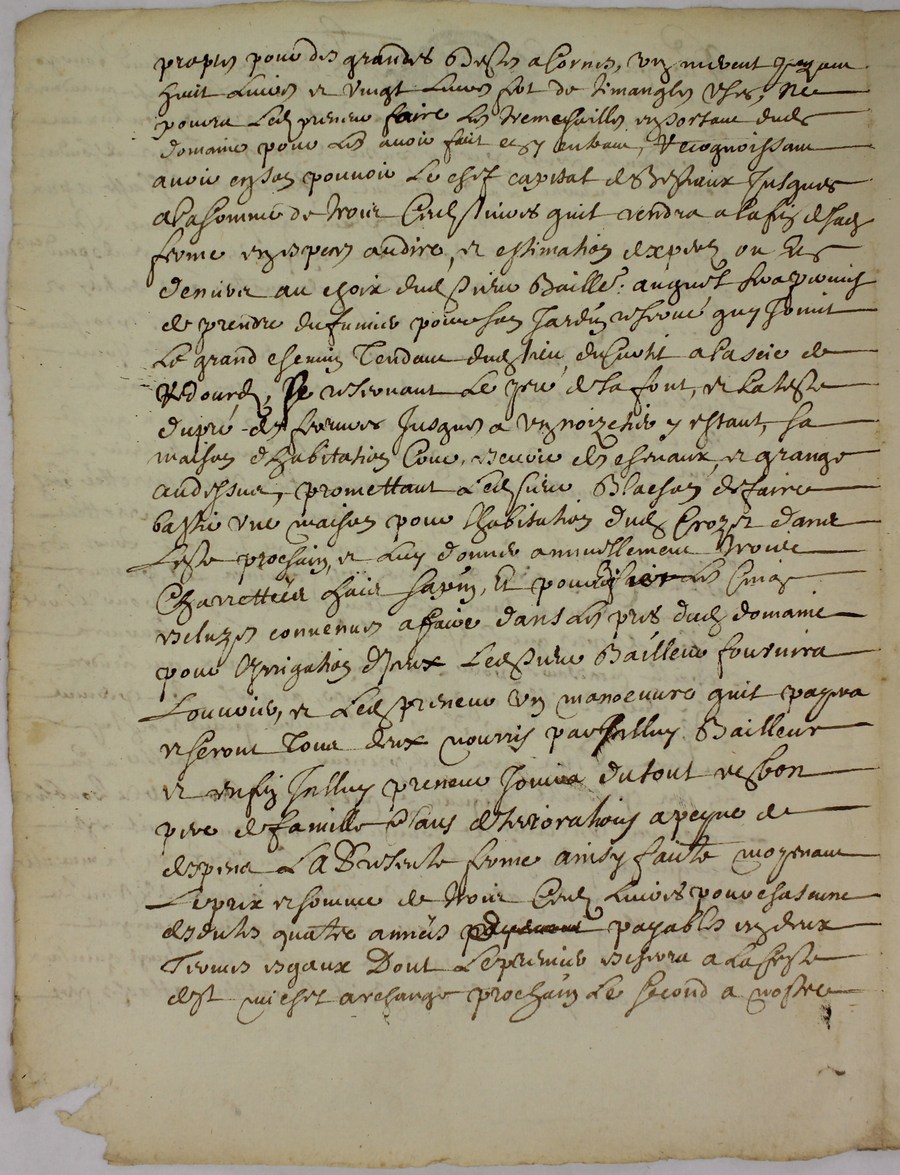 propres pour des grandes bestes a Cornes, un
huit Livres et vingt Livres fert de timangles uses, Ne
pourra Ledt preneur faire Les tremesailles en sortant dudt
domaine pour Les avoir fait en y entrant, Recognoissant
avoir en son pouvoir Le chef capital de Bestiaux Jusques
a La somme de trois Cent Livres quil rendra a la fin de sad
ferme en especes audire, et estimation dexpers ou en
deniers au choix dud Sieur Bailleur auquel sera permis
de prendre du fumier pour son Jardin reservé quy Joint
Le grand chemin Tendant dud Lieu a la scie de
Redourd, Se reservant Le pré de la font, et La teste
du pré des fermes Jusques a un noizetier y estant, sa
maison d'habitation Cour, escurie des chevaux, et grange
audessus, promettant Ledt Sieur Blachon de faire
bastir une maison pour L'habitation dud Crozet dans
Leste prochain, et Luy donner annuellement trois
Charrettées bois sapin, Et pour Les Cinq
escluzes convenues a faire dans Les pres dud domaine
pour L'irrigation d'iceux Ledt Sieur Bailleur fournira
Louvrier, et Ledt preneur un manoeuvre quil payera
et seront Tous deux nourris par Icelluy Bailleur
et enfin Icelluy preneur Jouira du tout en bon
pere de famille sans deteriorations a peyne de
despens La Presente ferme ainsy faite moyenant
Le prix et somme de trois Cent Livres pour chascune
desdites quatre années payables en deux
Termes esgaux Dont Le premier eschera a La feste
de St michel archange prochain Le second a nostre